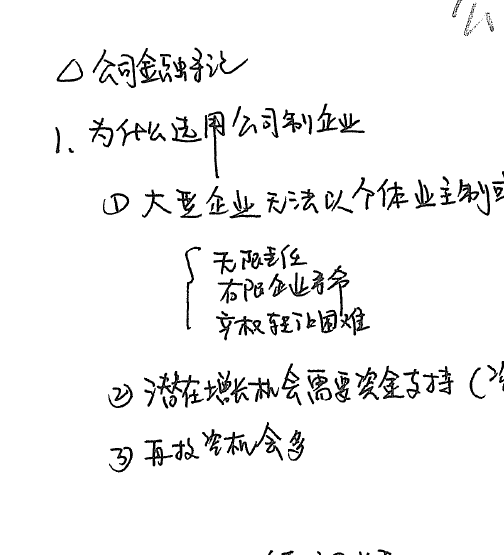 △ 公司金融导论
1、为什么选用公司制企业
① 大型企业无法以个体业主制或
无限责任
有限企业寿命
产权转让困难
② 潜在增长机会需要资金支持（
③ 再投资机会多